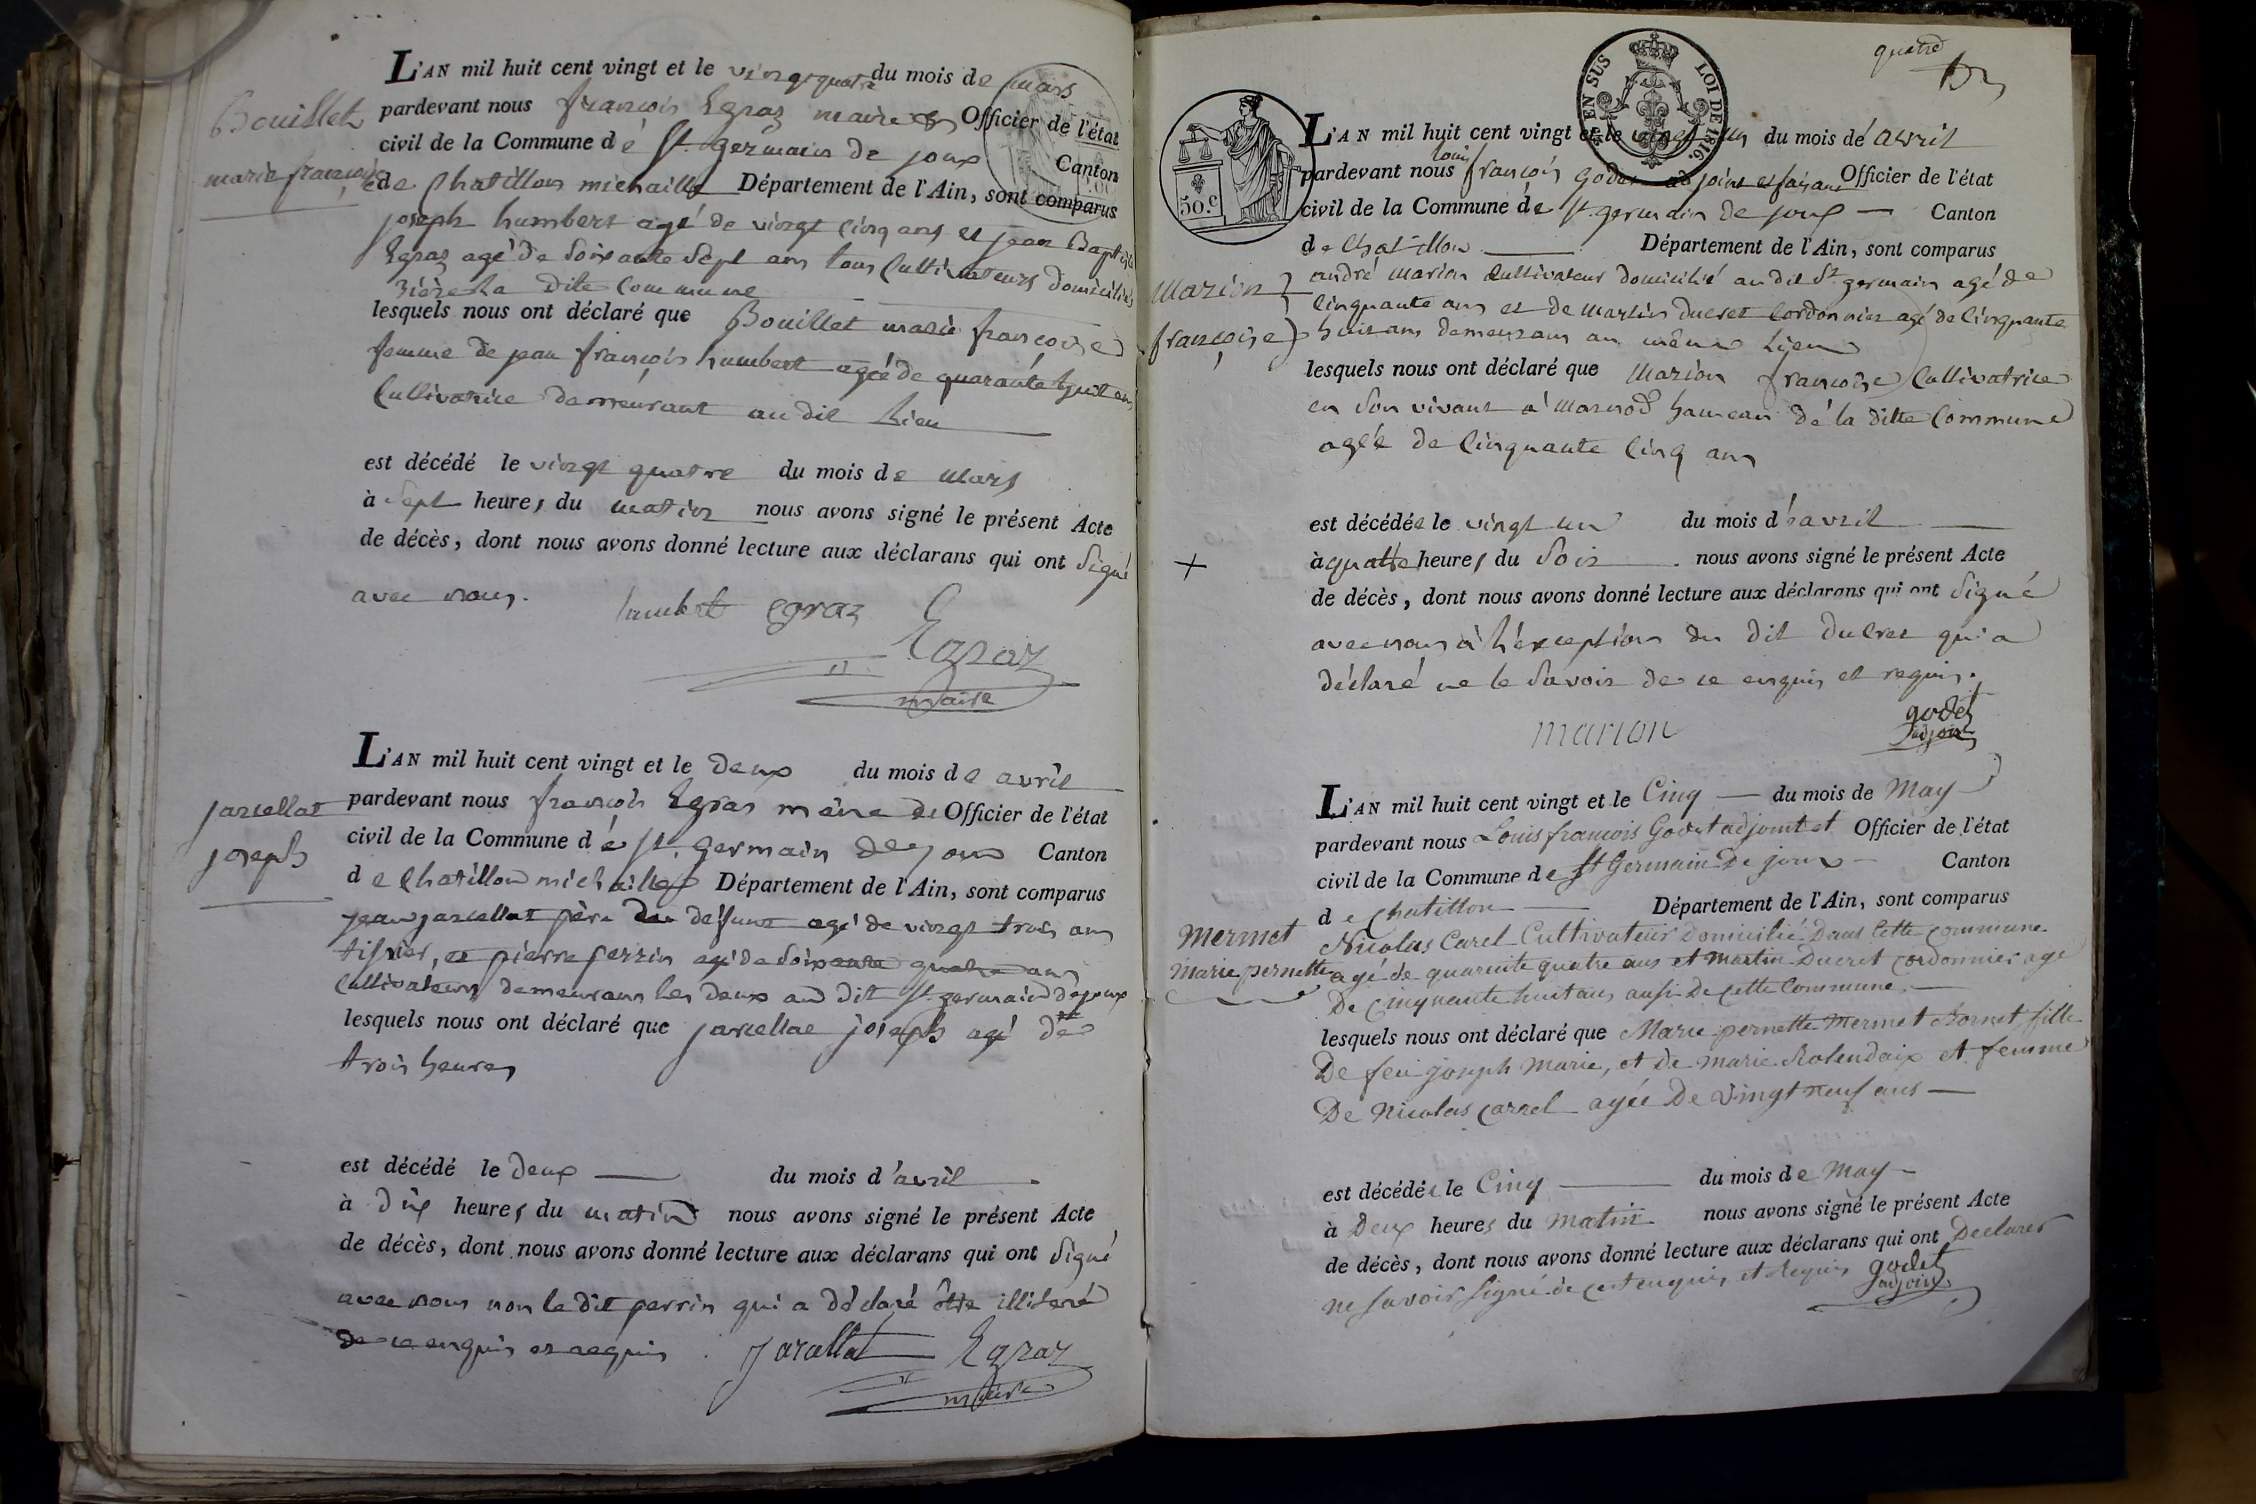 Bouillet
marie françoise
L'AN mil huit cent vingt et le vingt quatre du mois de mars
pardevant nous françois Egraz maire Officier de l'état
civil de la Commune dé St. germain de joux Canton
de Chatillon michaille Département de l'Ain, sont comparus
joseph humbert agé de vingt cinq ans et jean Baptiste
Egraz agé de soixante sept ans tous Cultivateurs domiciliés
rière la dite Commune
lesquels nous ont déclaré que Bouillet marie françoise
femme de jean françois humbert agée de quarante huit ans
Cultivatrice demeurant audit Lieu
est décédé le vingt quatre du mois de mars
à sept heures du matin nous avons signé le présent Acte
de décès, dont nous avons donné lecture aux déclarans qui ont signé
avec nous.
humbert egraz
Egraz
maire
jarcellat
joseph
L'AN mil huit cent vingt et le deux du mois de avril
pardevant nous françois Egraz maire Officier de l'état
civil de la Commune dé St. germain de joux Canton
de Chatillon michaille Département de l'Ain, sont comparus
jean jarcellat père du défunt agé de vingt trois ans
tissier, et pierre perrin agé de soixante quatre ans
Cultivateurs demeurans les deux au dit St. germain de joux
lesquels nous ont déclaré que jarcellat joseph agé de
trois heures
est décédé le deux du mois d'avril
à dix heures du matin nous avons signé le présent Acte
de décès, dont nous avons donné lecture aux déclarans qui ont signé
avec nous non le dit perrin qui a déclaré être illiteré
de ce enquis et requis. jarcellat Egraz
maire
quatre
EN SUS LOI DE 1816.
50.c
Marion
françoise
L'AN mil huit cent vingt et le vingt un du mois dé avril
louis
pardevant nous françois godet adjoint et faisant Officier de l'état
civil de la Commune dé St. germain de joux Canton
de Chatillon Département de l'Ain, sont comparus
andré marion Cultivateur domicilié au dit St germain agé de
Cinquante ans et de martin ducret Cordonnier agé de Cinquante
huit ans demeurans au même Lieu
lesquels nous ont déclaré que Marion françoise Cultivatrice
en son vivant à marnod hameau dé la ditte Commune
agée de Cinquante Cinq ans
est décédée le vingt un du mois d'avril
à quatre heures du soir nous avons signé le présent Acte
de décès, dont nous avons donné lecture aux déclarans qui ont signé
avec nous à l'éxception du dit ducret qui a
déclaré ne le savoir de ce enquis et requis.
marion
godet
adjoint
Mermet
Marie pernette
L'AN mil huit cent vingt et le Cinq du mois de May
pardevant nous Louis françois Godet adjoint et Officier de l'état
civil de la Commune de St Germain De joux Canton
de Chatillon Département de l'Ain, sont comparus
Nicolas Carel Cultivateur Domicilié Dans Cette commune
agé de quarente quatre ans et martin Ducret cordonnier agé
De cinquante huit ans aussi De cette Commune.
lesquels nous ont déclaré que Marie pernette Mermet fille
De feu joseph Marie, et De marie et femme
De Nicolas Carrel agée De vingt neuf ans
est décédée le Cinq du mois de May
à Deux heures du matin nous avons signé le présent Acte
de décès, dont nous avons donné lecture aux déclarans qui ont Declarer
ne savoir signé de cet enquis et Requis godet
adjoint